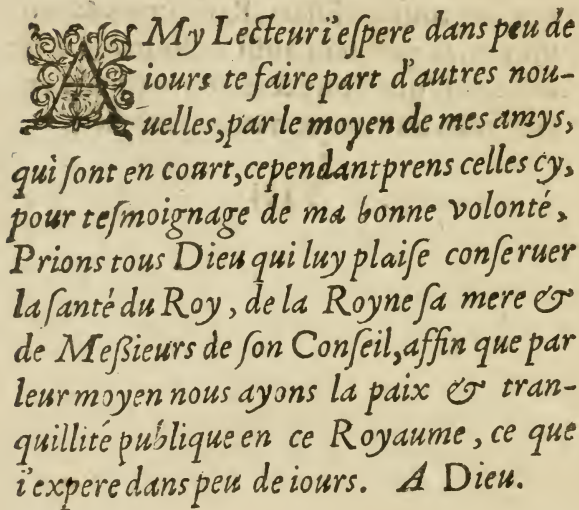 AMy Lecteur i'eſpere dans peu de
iours te faire part d'autres nou-
uelles, par le moyen de mes amys,
qui ſont en court, cependant prens celles cy,
pour teſmoignage de ma bonne volonté,
Prions tous Dieu qui luy plaiſe conſeruer
la ſanté du Roy, de la Royne ſa mere &
de Meſsieurs de ſon Conſeil, affin que par
leur moyen nous ayons la paix & tran-
quillité publique en ce Royaume, ce que
i'expere dans peu de iours. A Dieu.